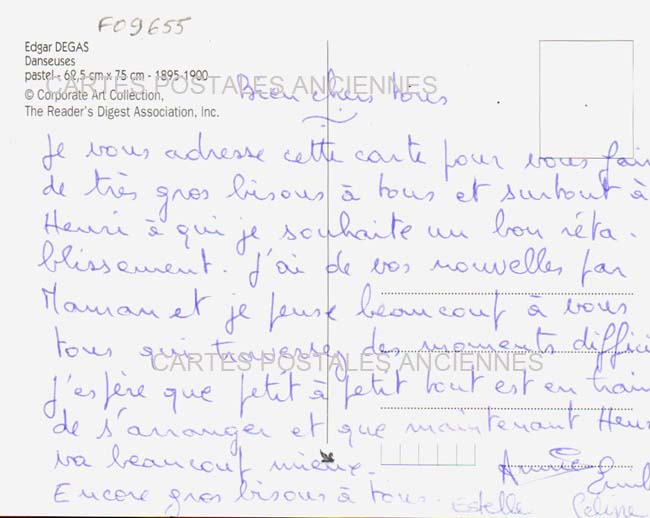 F09655
Edgar DEGAS
Danseuses
pastel - 62,5 cm x 75 cm - 1895-1900
© Corporate Art Collection,
The Reader's Digest Association, Inc.
CARTES POSTALES ANCIENNES
Bien chers tous
Je vous adresse cette carte pour vous fair
de très gros bisous à tous et surtout à
Henri à qui je souhaite un bon réta-
blissement. J'ai de vos nouvelles par
Maman et je pense beaucoup à vous
tous qui traversez des moments diffici
CARTES POSTALES ANCIENNES
J'espère que petit à petit tout est en train
de s'arranger et que maintenant Henr
va beaucoup mieux.
Annie
Encore gros bisous à tous. Estelle Céline